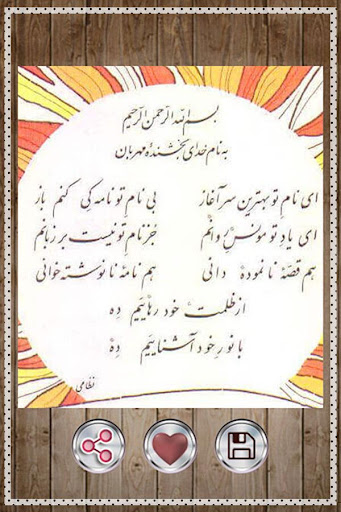 بسم الله الرحمن الرحیم
به نام خدای بخشندهٔ مهربان
ای نامِ تو بهترین سرآغاز    بی نامِ تو نامه کی کنم باز
ای یادِ تو مونسِ روانم    جز نامِ تو نیست بر زبانم
هم قصّهٔ نانموده دانی    هم نامهٔ نانوشته خوانی
از ظلمتِ خود رهاییم ده
با نورِ خود آشناییم ده
نظامی